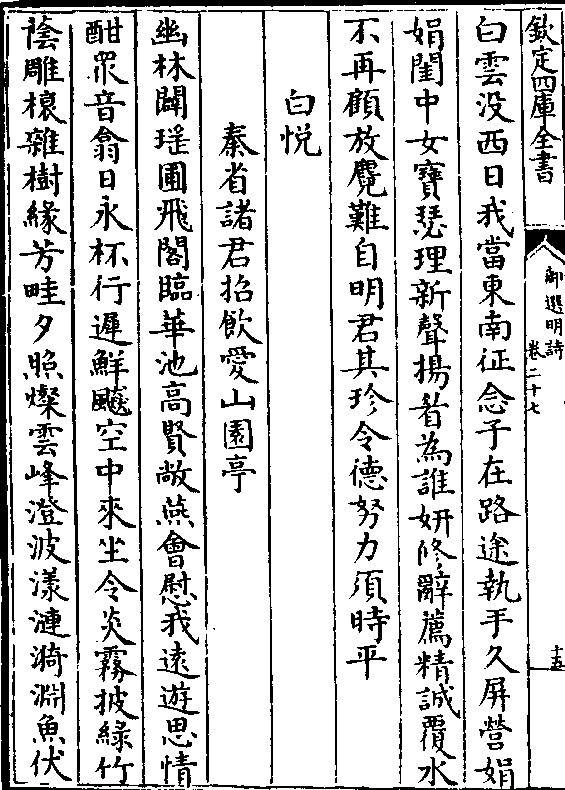 欽定四庫全書
御選明詩 卷二十七
十五
白雲没西日我當東南征念子在路途執手久屏營娟
娟閨中女寶瑟理新聲揚眉為誰妍修辭薦精誠覆水
不再顧放麑難自明君其珍令德努力須時平
白悅
秦省諸君招飲愛山園亭
幽林闢瑤圃飛閣臨華池高賢敞燕會慰我遠遊思情
酣眾音翕日永杯行遲鮮飈空中來坐令炎霧披綠竹
蔭雕榱雜樹緣芳畦夕照燦雲峰澄波漾漣漪淵魚伏